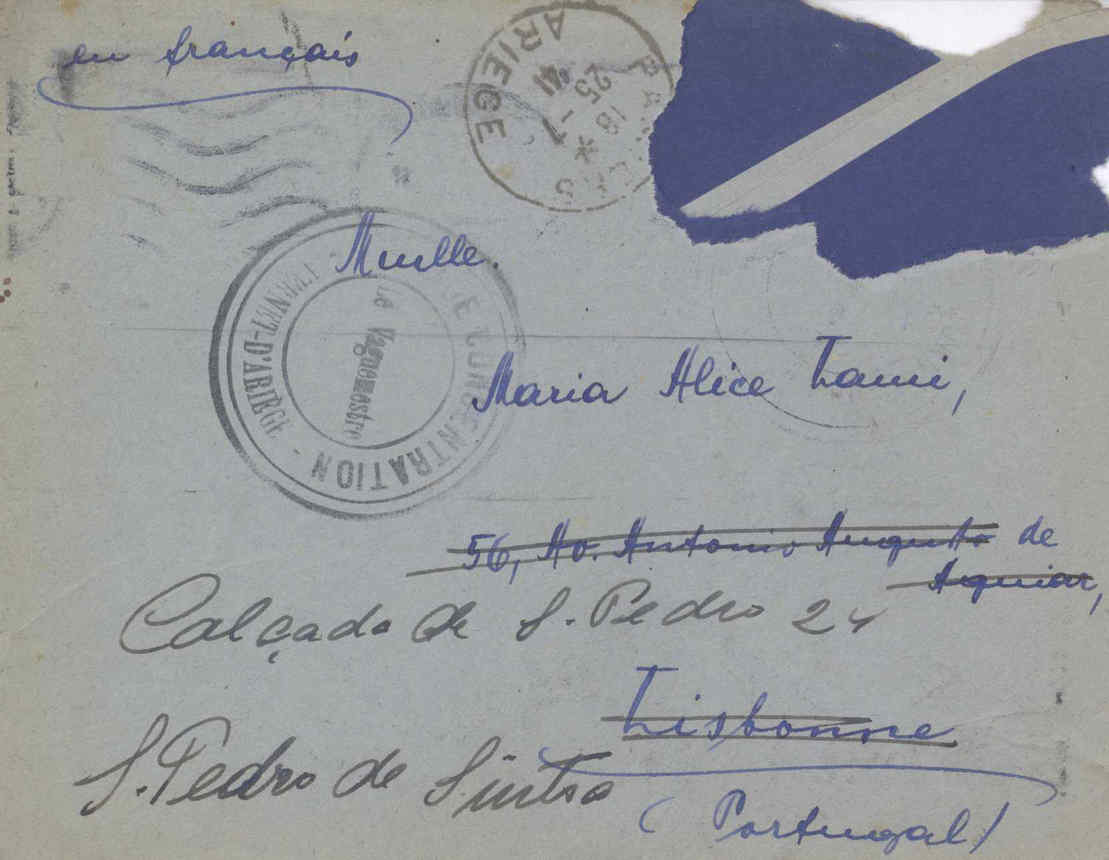 en français
PAMIERS
ARIEGE
18 *
25 - 7
41
Muelle.
CONCENTRATION -
VERNET-D'ARIEGE -
Le Vaguemestre
Maria Alice Lami,
56, Av. Antonio Augusto de
Aguiar,
Calçada de S. Pedro 24
Lisbonne
S. Pedro de Sintra
(Portugal)